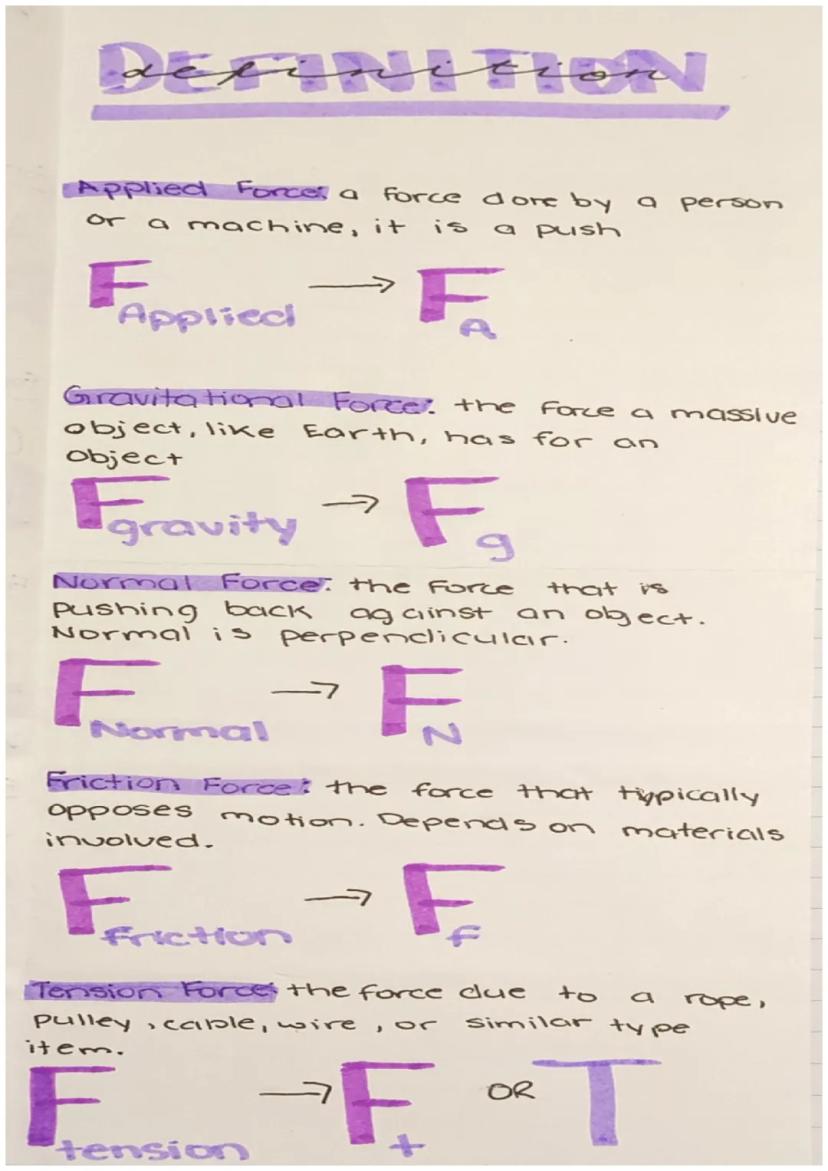 DEFINITION
definition
Applied Force: a force done by a person
or a machine, it is a push
F Applied → F A
Gravitational Force: the force a massive
object, like Earth, has for an
object
F gravity → F g
Normal Force: the force that is
pushing back against an object.
Normal is perpendicular.
F Normal → F N
Friction Force: the force that typically
opposes motion. Depends on materials
involved.
F friction → F f
Tension Force: the force due to a rope,
pulley, cable, wire, or similar type
item.
F tension → F t OR T